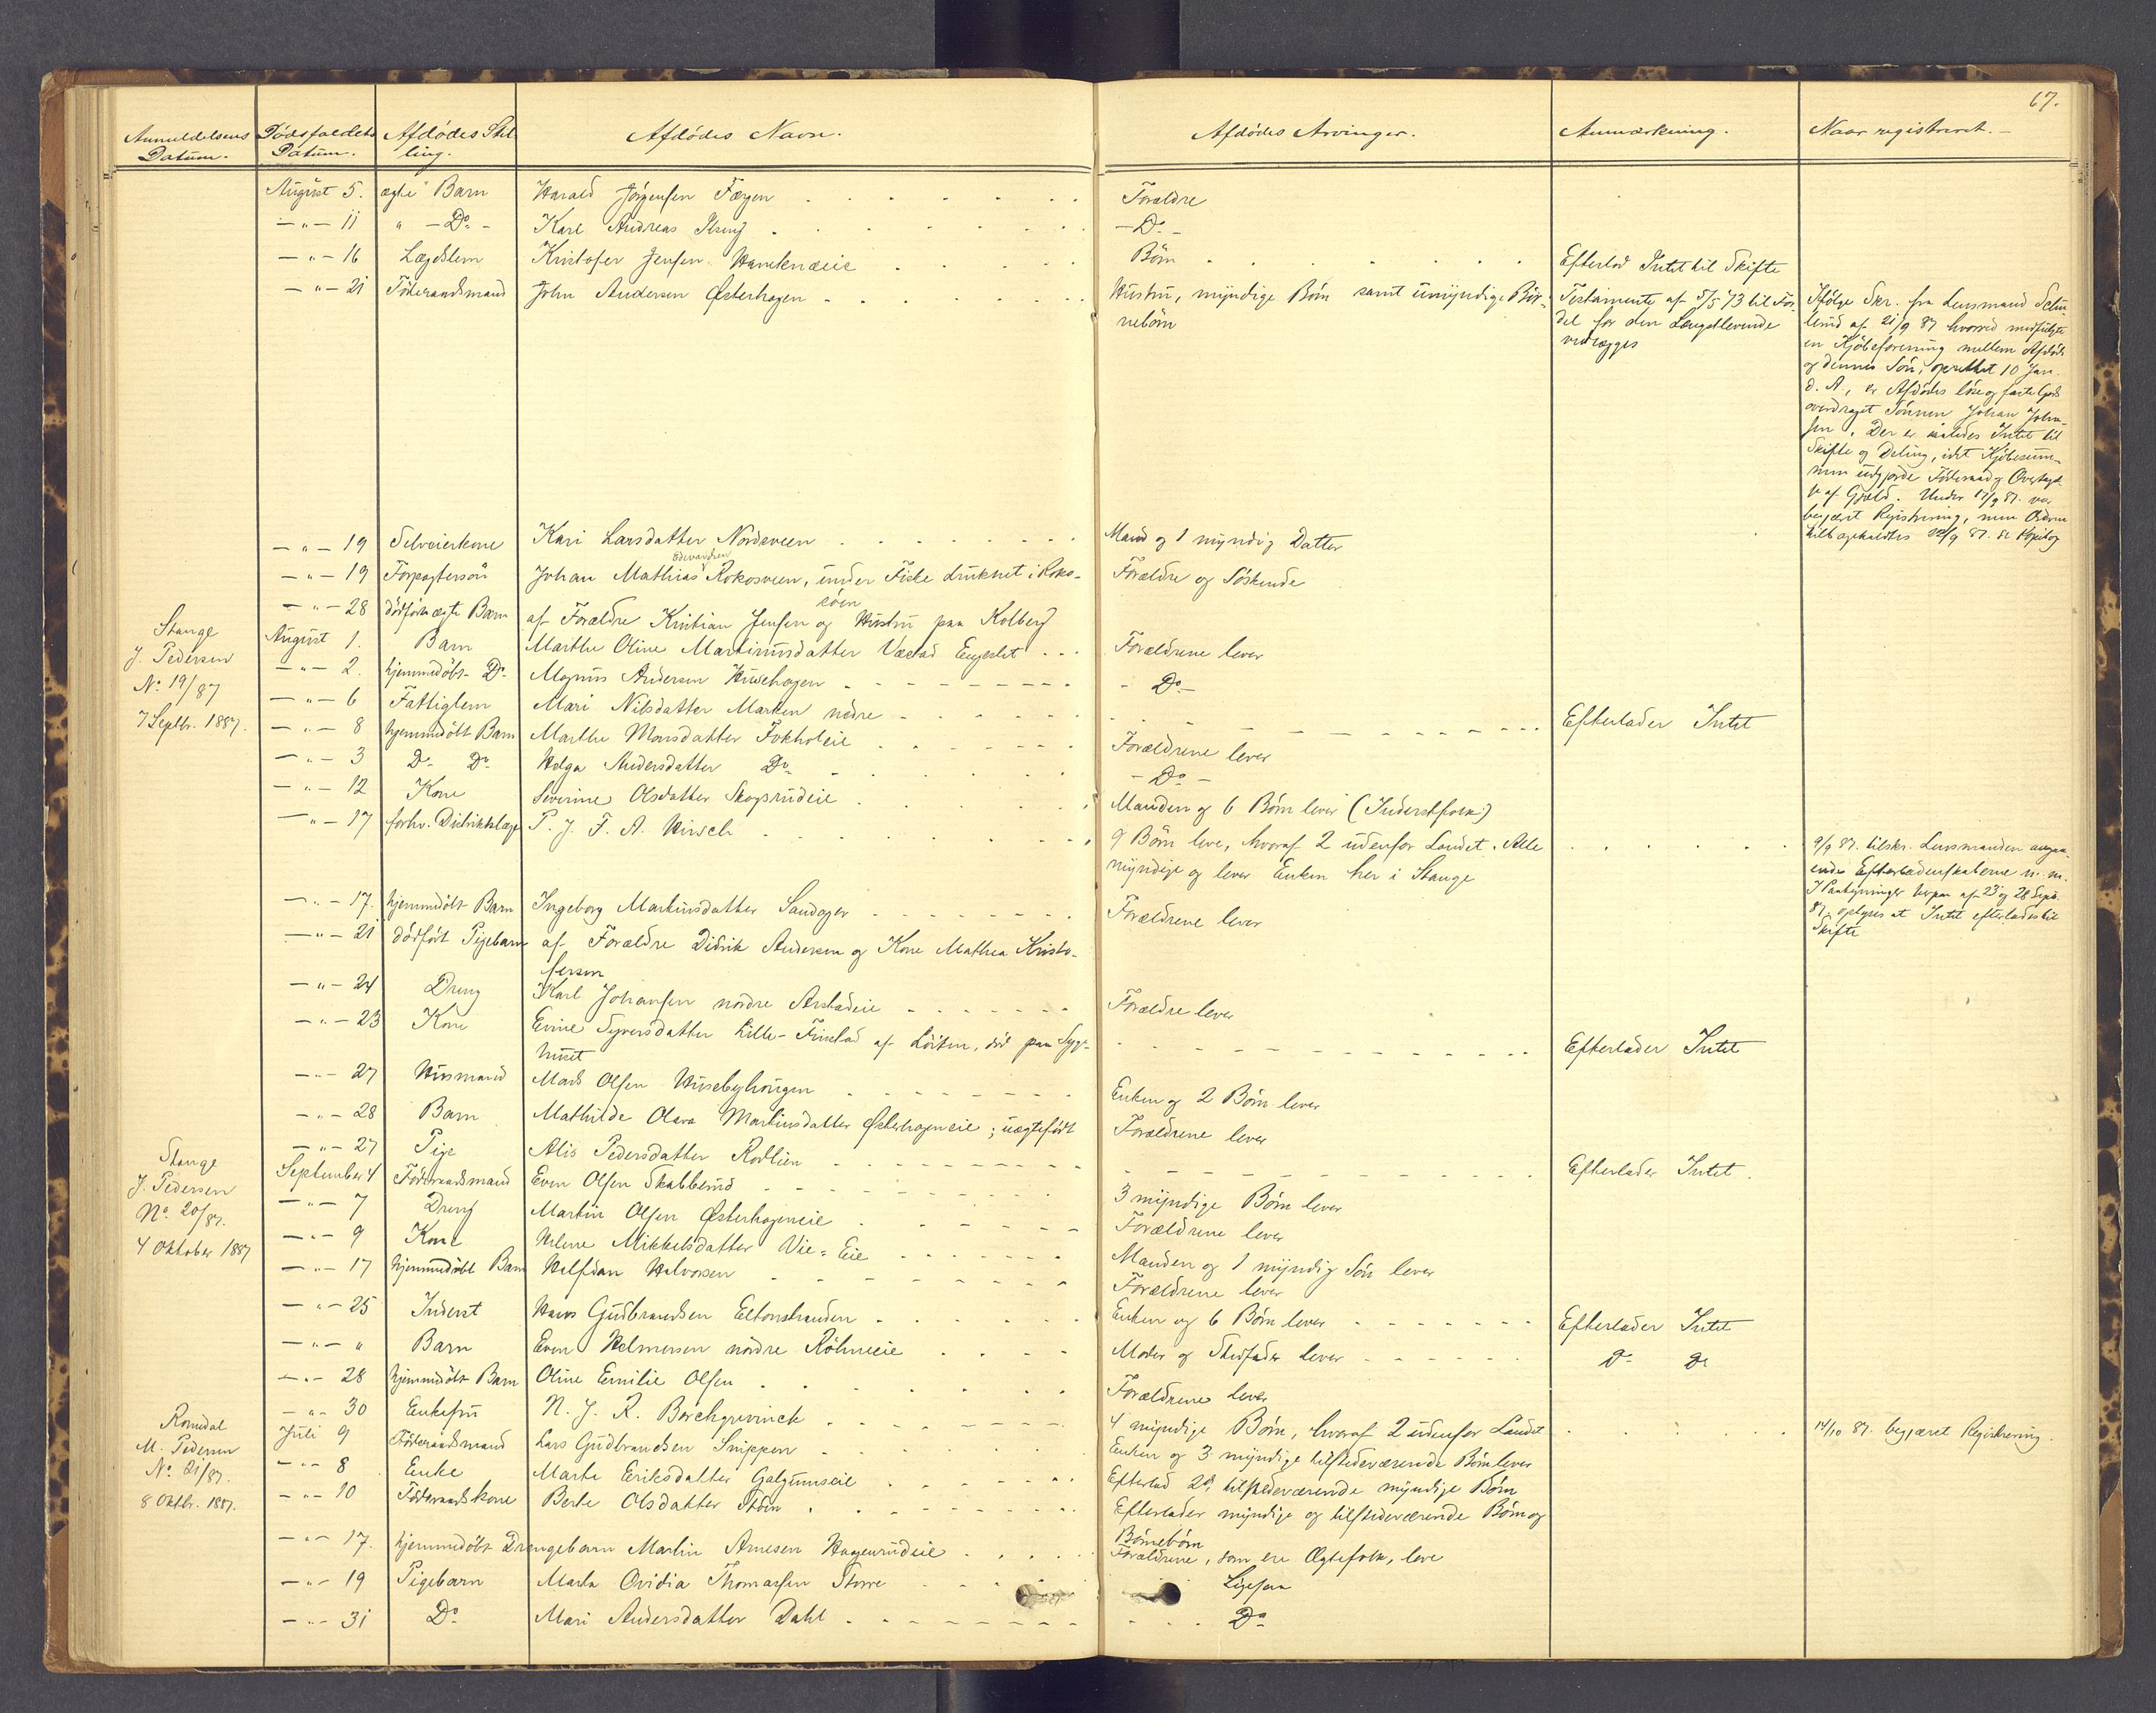 67.
Anmeldelsens Datum. Dødsfaldets Datum. Afdødes Stilling. Afdødes Navn. Afdødes Arvinger. Anmærkning. Naar registreret.
August 5. ægte Barn Harald Jørgensen Færgen Forældre
— " — 11 " — Do - Karl Andreas Do -
— " — 16 Lægdslem Kristofer Jensen Børn Efterlod Intet til Skifte
— " — 21 Föderaadsmand John Andersen Østerhagen Hustru, myndige Børn samt umyndige Børnebørn Testamente af 5/5 73 til Fordel for den Længstlevende vedlægges
Ifølge Skr. fra Lensmand
af 21/9 87 hvorved medfulgte
en Kjøbeforening mellem Afdøde
og dennes Søn, oprettet 10 Jan.
d. A., er Afdødes løse og faste Gods
overdraget Sønnen Johan John-
sen. Der er saaledes Intet til
Skifte og Deling, idet Kjøbesum-
men udgjorde Föderaad og Overtagel-
se af Gjæld. Under 17/9 87. var
begjært Registrering, men Ordren
tilbagekaldtes 22/9 87.
— " — 19 Selveierkone Kari Larsdatter Nordsveen Mand og 1 myndig Datter
— " — 19 Forpagtersøn Johan Mathias Edvardsen Rokosveen, under Fiske druknet i Roko- søen Forældre og Søskende
— " — 28 dødfødt ægte Barn af Forældre Kristian Jensen og Hustru paa Kolberg
Stange
J. Pedersen
No 19/87
7 Septbr. 1887.
August 1. Barn Marthe Oline Martinusdatter Væstad Engeslet Forældrene lever
— " — 2. hjemmedøbt Do Magnus Andersen Husehagen - Do -
— " — 6 Fattiglem Mari Nilsdatter Marken nedre Efterlader Intet
— " — 8 hjemmedøbt Barn Marthe Monsdatter Fokholeie Forældrene lever
— " — 3 Do Do Helga Andersdatter Do - Do -
— " — 12 Kone Severine Olsdatter Skogsrudeie Manden og 6 Børn lever (Inderstfolk)
— " — 17 forhv. Distriktslæge P. J. F. A. Hirsch 9 Børn leve, hvoraf 2 udenfor Landet. Alle
myndige og lever Enken her i Stange
9/9 87. tilskr. Lensmanden angaa-
ende Efterladenskaberne m. m.
I Paategninger herpaa af 23 og 28 Sept.
87. oplyses at Intet efterlades til
Skifte
— " — 17. hjemmedøbt Barn Ingeborg Martinsdatter Sandager Forældrene lever
— " — 21 dødfødt Pigebarn af Forældre Didrik Andersen og Kone Mathea Kristo-
fersen
— " — 24 Dreng Karl Johansen nordre Arstadeie Forældre lever
— " — 23 Kone Evine Syversdatter Lille-Finstad af Löiten, död paa Syge-
huset Efterlader Intet
— " — 27 Husmand Mads Olsen Husebyhougen Enken og 2 Børn lever
— " — 28 Barn Mathilde Olava Martinsdatter Østerhageneie; uægtefødt Forældrene lever
— " — 27 Pige Alis Pedersdatter Rodlien Efterlader Intet.
Stange
J. Pedersen
No 20/87.
4 Oktober 1887
September 4 Föderaadsmand Even Olsen Skabberud 3 myndige Børn lever
— " — 7 Dreng Martin Olsen Østerhageneie Forældrene lever
— " — 9 Kone Helene Mikkelsdatter Vie-Eie Manden og 1 myndig Søn lever
— " — 17 hjemmedøbt Barn Halfdan Halvorsen Forældrene lever
— " — 25 Inderst Hans Gudbrandsen Eltonstranden Enken og 6 Børn lever Efterlader Intet
— " — " Barn Even Helmersen nordre Röhneeie Moder og Stedfader lever Do Do
— " — 28 hjemmedøbt Barn Oline Emilie Olsen Forældrene lever
— " — 30 Enkefru N. J. R. Borchgrevinck 4 myndige Børn, hvoraf 2 udenfor Landet 14/10 87. begjæret Registrering.
Romedal
M. Pedersen
No 21/87.
8 Oktbr. 1887.
Juli 9 Föderaadsmand Lars Gudbrandsen Snippen Enken og 3 myndige tilstedeværende Børn lever
— " — 8 Enke Marte Eriksdatter Galgumseie Efterlod 2 tilstedeværende myndige Børn
— " — 10 Föderaadskone Berte Olsdatter Støen Efterlader myndige og tilstedeværende Børn og
Børnebørn
— " — 17. hjemmedøbt Drengebarn Martin Arnesen Haagenrudeie Forældrene, som ere Ægtefolk, leve
— " — 19 Pigebarn Marta Ovidia Thomassen Storre Ligesaa
— " — 31 Do Mari Andersdatter Dahl Do